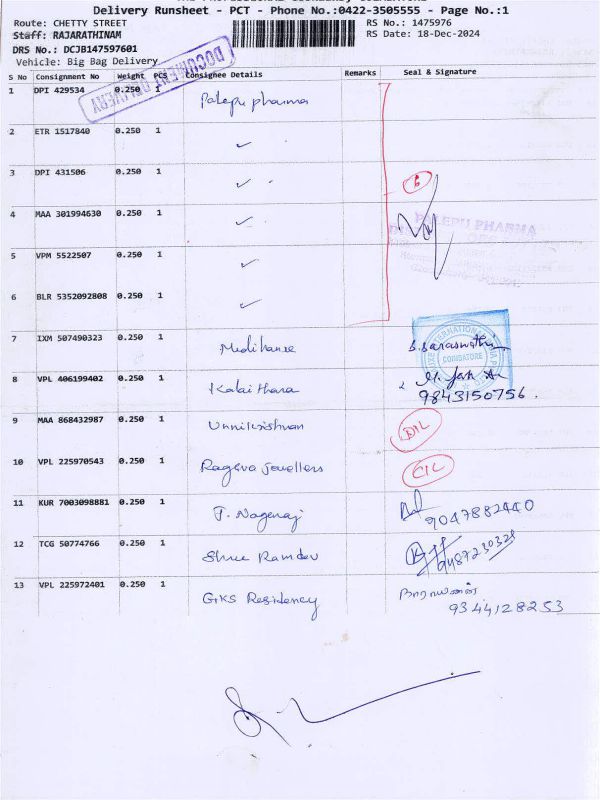 Delivery Runsheet - PCT - Phone No.:0422-3505555 - Page No.:1
Route: CHETTY STREET RS No.: 1475976
Staff: RAJARATHINAM RS Date: 18-Dec-2024
DRS No.: DCJB147597601
Vehicle: Big Bag Delivery
DOCUMENT DELIVERY
S No Consignment No Weight PCS Consignee Details Remarks Seal & Signature
1 DPI 429534 0.250 1 Palepu pharma
2 ETR 1517840 0.250 1 ✓
3 DPI 431506 0.250 1 ✓ 6
4 MAA 301994630 0.250 1 ✓ PALEPU PHARMA
5 VPM 5522507 0.250 1 ✓
6 BLR 5352092808 0.250 1 ✓
7 IXM 507490323 0.250 1 S. Saraswathi
COIMBATORE
8 VPL 406199402 0.250 1 Kalaithara
9843150756.
9 MAA 868432987 0.250 1 Unnikrishnan
10 VPL 225970543 0.250 1 Ragava Jewellers
11 KUR 7003098881 0.250 1 T. Nagaraj 9047882440
12 TCG 50774766 0.250 1 Shree Ramdev 9487230321
13 VPL 225972401 0.250 1 GKS Residency நாராயணன்
9344128253